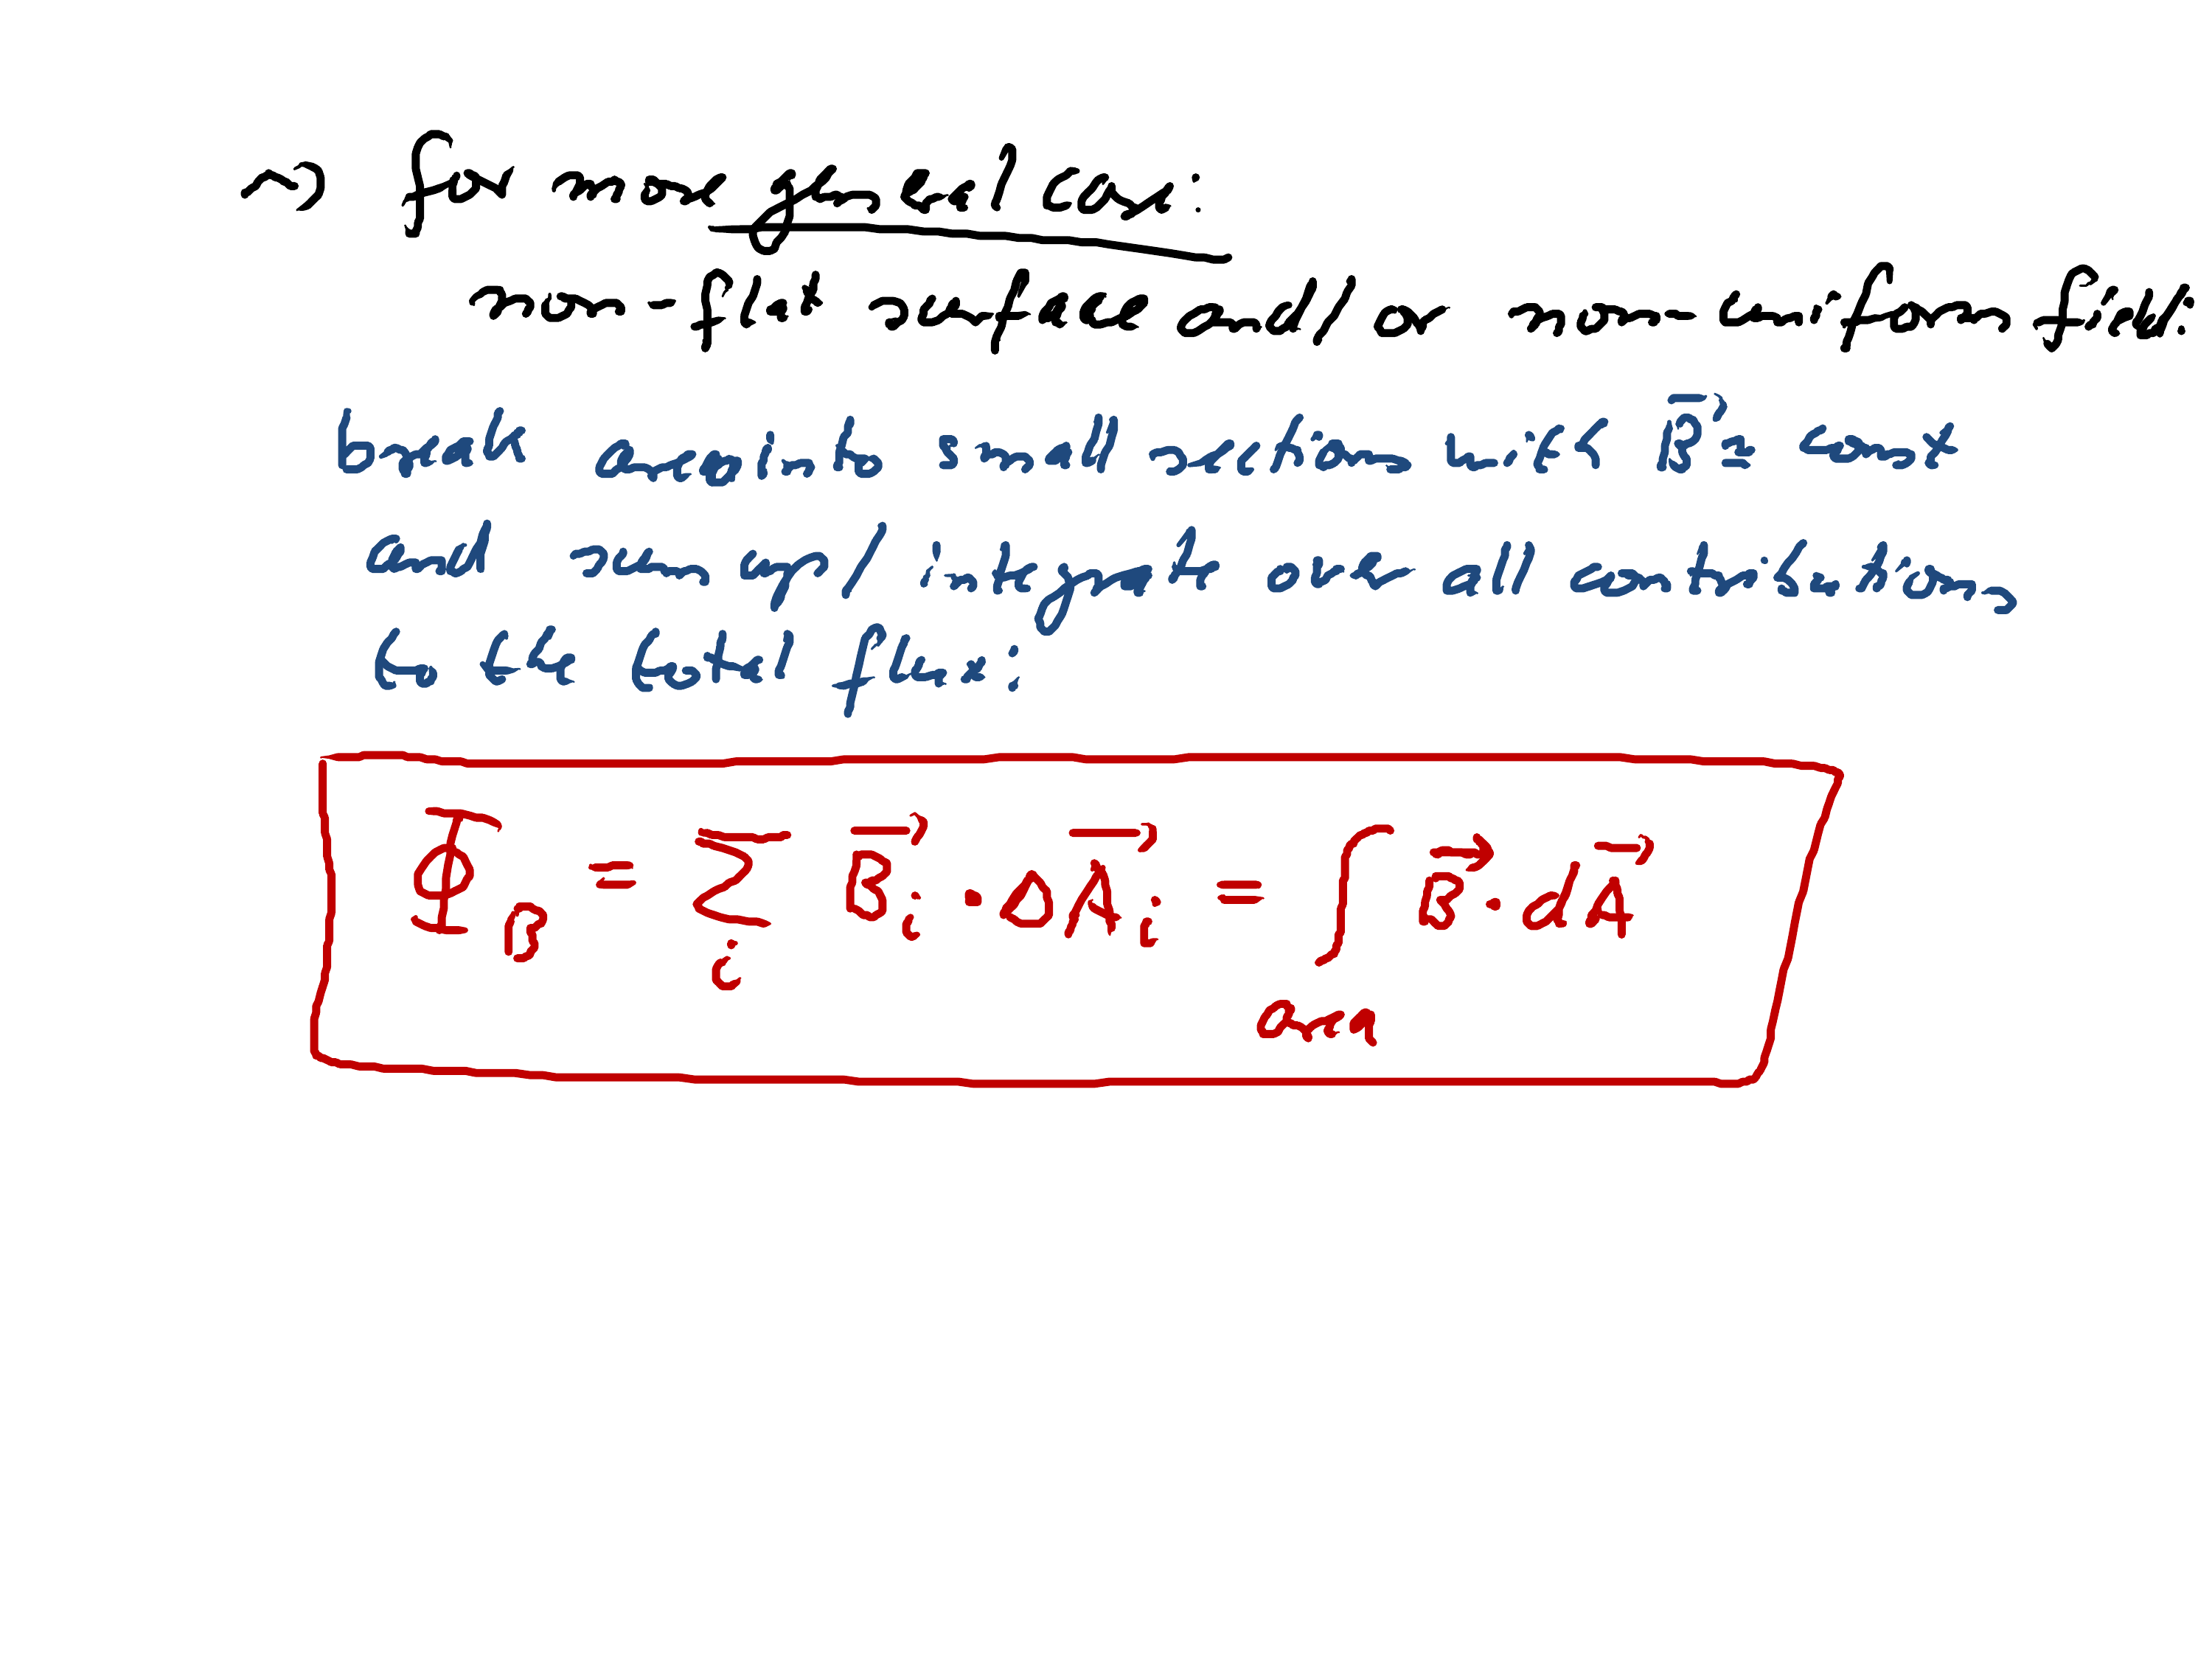 ⇒ for more general case:
non-flat surface and/or non-uniform field:
break area into small sections with B⃗ ≈ const
and sum up/integrate over all contributions
to the total flux:
Φ_B = Σ_i B⃗_i · ΔA⃗_i = ∫ B⃗ · dA⃗
area